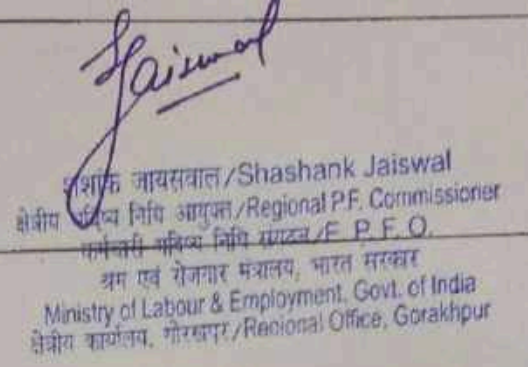 Jaiswal
शशांक जायसवाल/Shashank Jaiswal
क्षेत्रीय भविष्य निधि आयुक्त/Regional P.F. Commissioner
कर्मचारी भविष्य निधि संगठन/E. P. F. O.
श्रम एवं रोजगार मंत्रालय, भारत सरकार
Ministry of Labour & Employment, Govt. of India
क्षेत्रीय कार्यालय, गोरखपुर/Regional Office, Gorakhpur